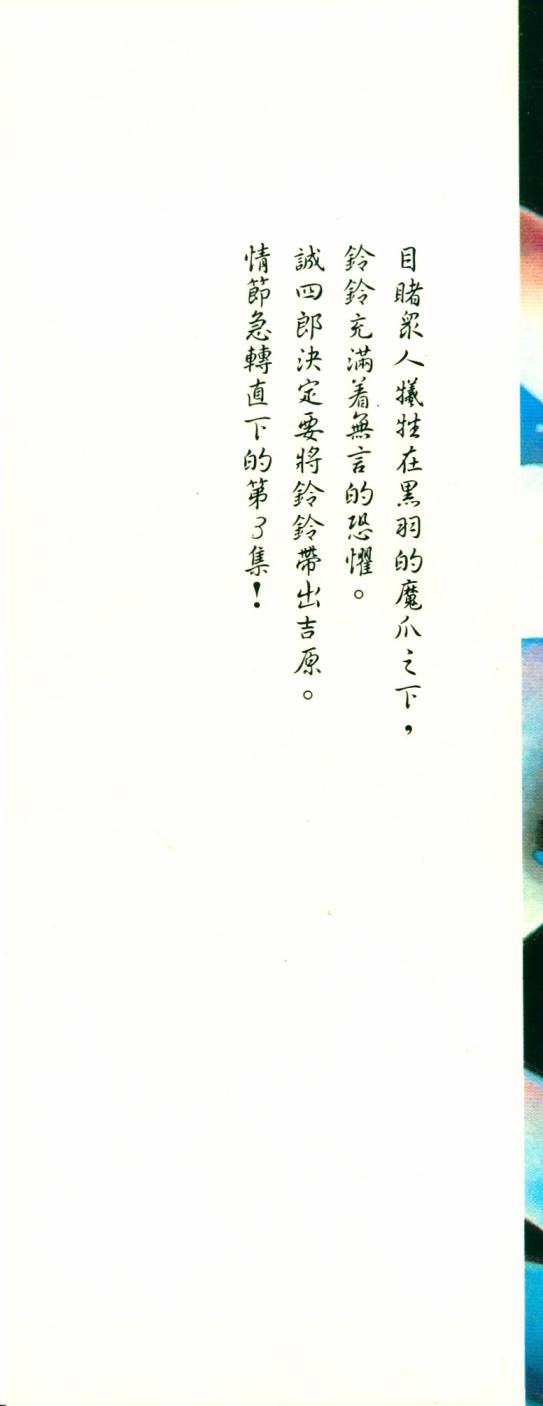 目睹眾人犧牲在黑羽的魔爪之下，
鈴鈴充滿着無言的恐懼。
誠四郎決定要將鈴鈴帶出吉原。
情節急轉直下的第3集！